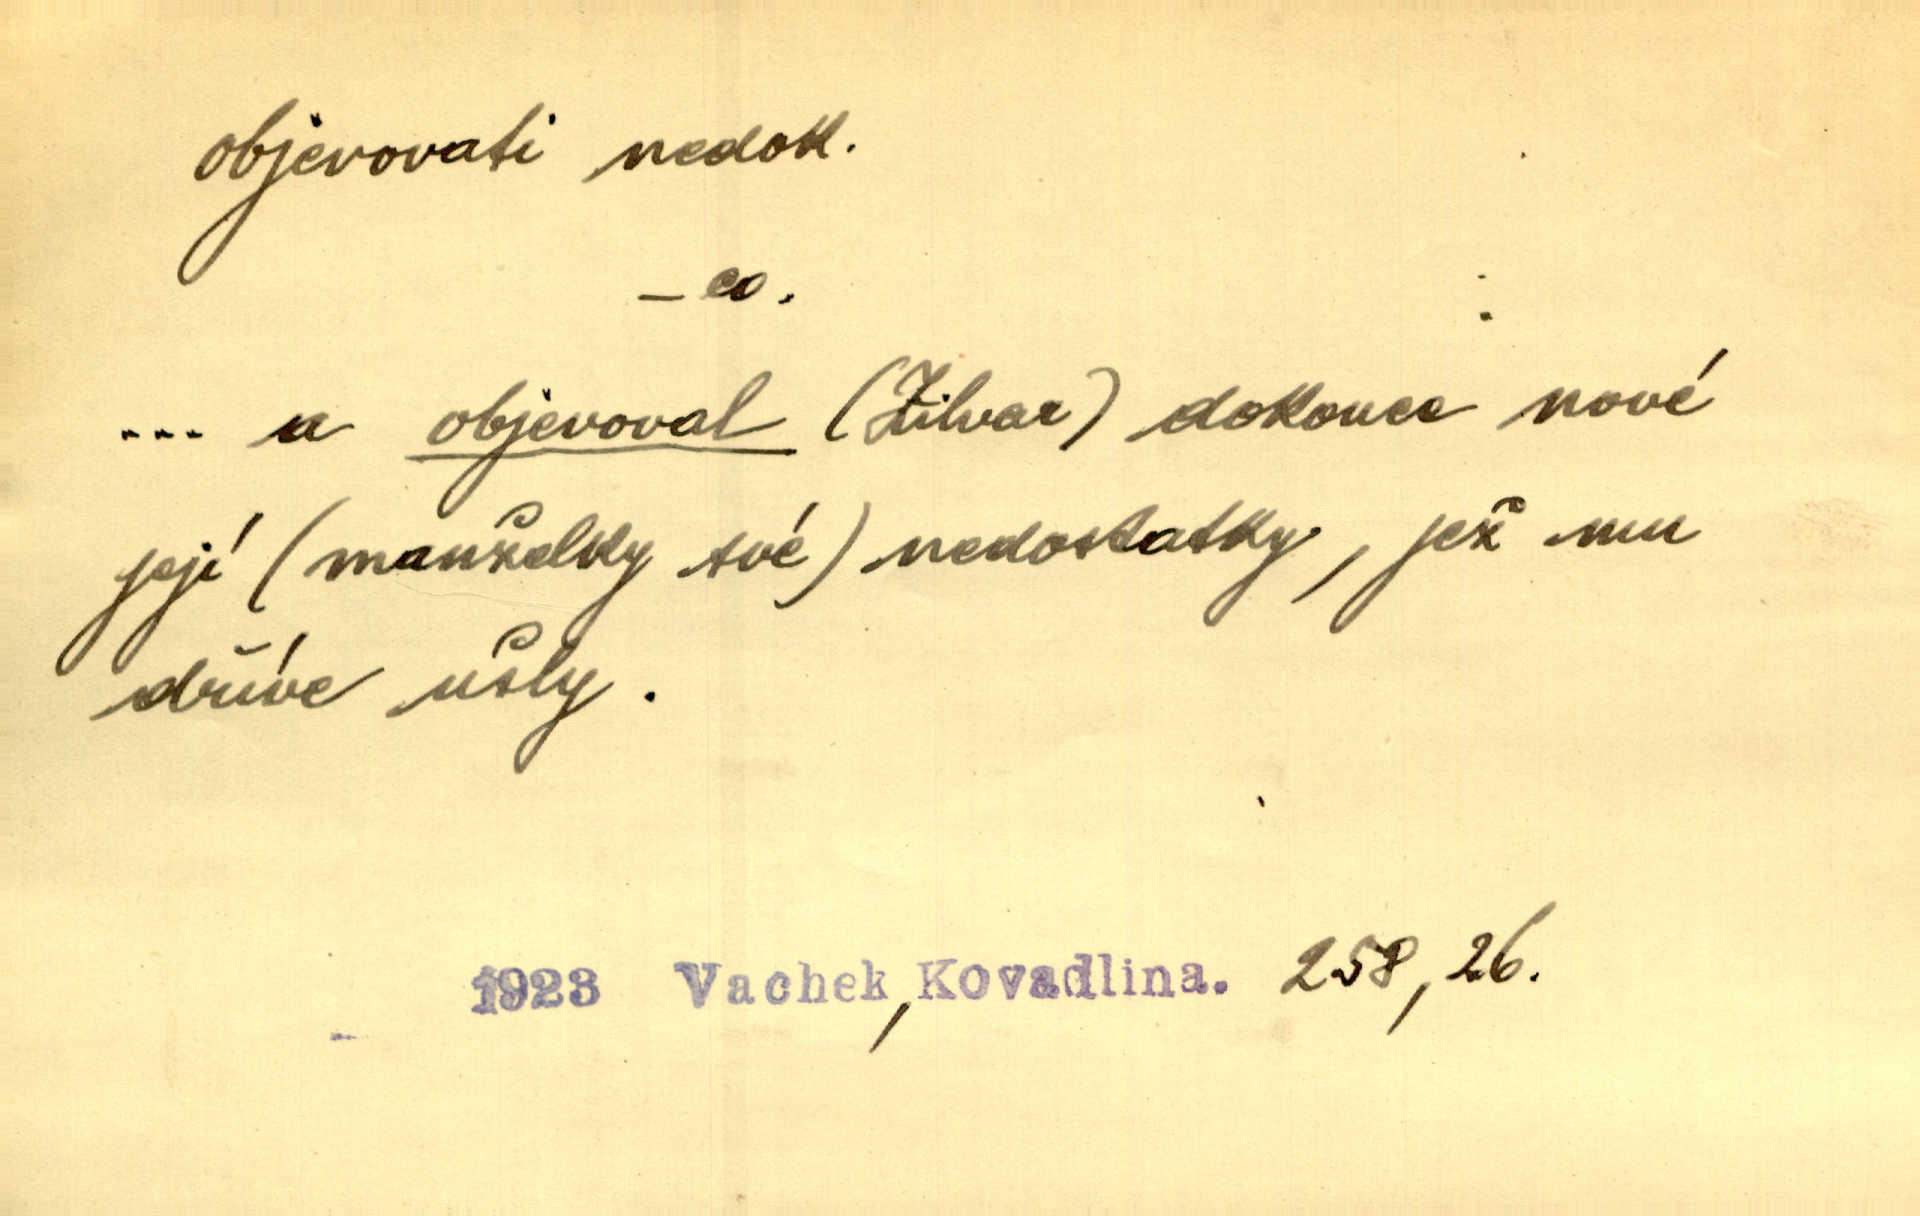 objevovati nedok.
– co.
--- a objevoval (Žilvar) dokonce nové
její (manželky své) nedostatky, jež mu
dříve ušly.
1923 Vachek, Kovadlina. 258, 26.